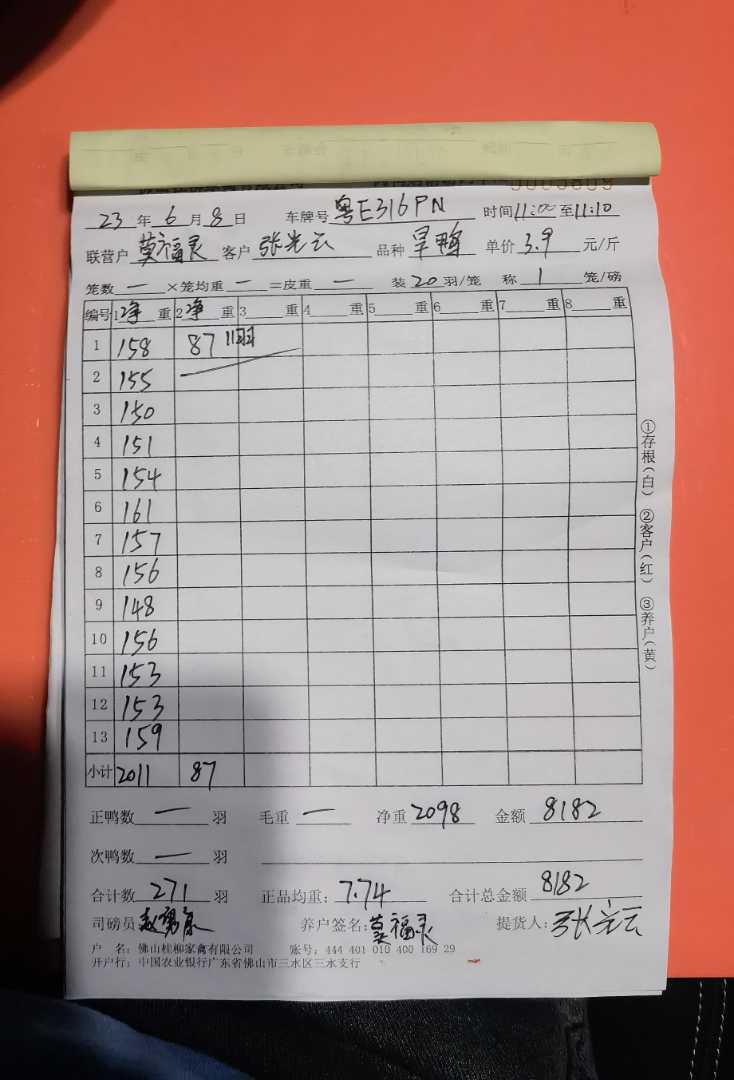 23 年 6 月 8 日 车牌号 粤E316PN 时间 11:00 至 11:10
联营户 莫福灵 客户 张光云 品种 旱鸭 单价 3.9 元/斤
笼数 一 ×笼均重 一 =皮重 一 装 20 羽/笼 称 1 笼/磅
编号 1 净 重 2 净 重 3 重 4 重 5 重 6 重 7 重 8 重
1 158 87 11羽
2 155
3 150
4 151
5 154
6 161
7 157
8 156
9 148
10 156
11 153
12 153
13 159
小计 2011 87
①存根(白) ②客户(红) ③养户(黄)
正鸭数 一 羽 毛重 一 净重 2098 金额 8182
次鸭数 一 羽
合计数 271 羽 正品均重: 7.74 合计总金额 8182
司磅员 养户签名: 莫福灵 提货人: 张光云
户 名: 佛山桂柳家禽有限公司 账号: 444 401 010 400 169 29
开户行: 中国农业银行广东省佛山市三水区三水支行